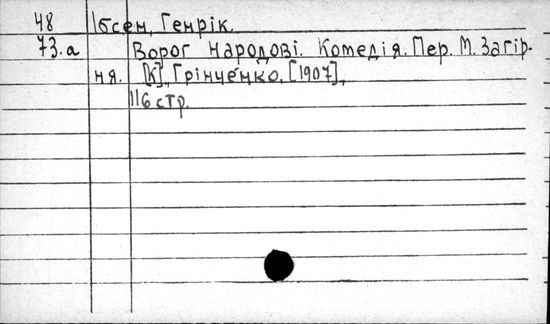 48 Ібсен, Генрік.
73.а Ворог народові. Комедія. Пер. М. Загір-
ня. [К], Грінченко, [1907],
116 стр.